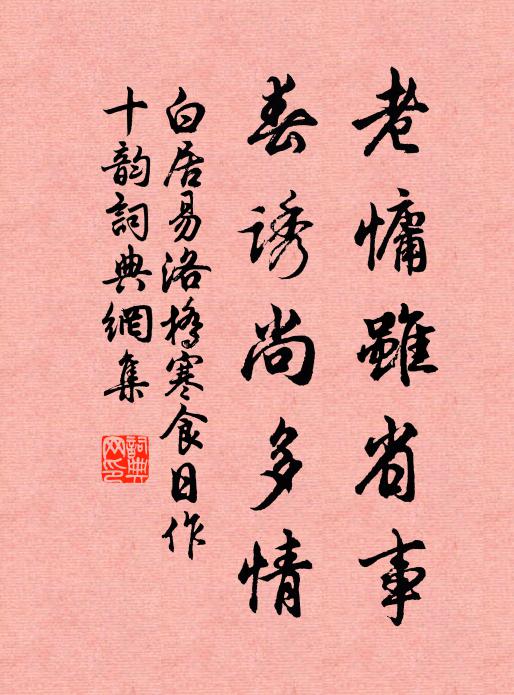 老慵雖省事
春誘尚多情
白居易洛橋寒食日作
十韵詞典網集
詞典
网印